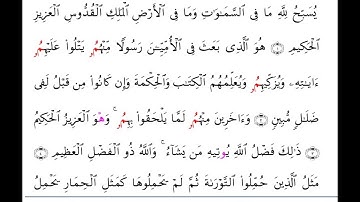 يُسَبِّحُ لِلَّهِ مَا فِى ٱلسَّمَٰوَٰتِ وَمَا فِى ٱلْأَرْضِ ٱلْمَلِكِ ٱلْقُدُّوسِ ٱلْعَزِيزِ
ٱلْحَكِيمِ ۝ هُوَ ٱلَّذِى بَعَثَ فِى ٱلْأُمِّيِّـۧنَ رَسُولًا مِّنْهُمُۥ يَتْلُوا۟ عَلَيْهِمُۥ
ءَايَٰتِهِۦ وَيُزَكِّيهِمُۥ وَيُعَلِّمُهُمُ ٱلْكِتَٰبَ وَٱلْحِكْمَةَ وَإِن كَانُوا۟ مِن قَبْلُ لَفِى
ضَلَٰلٍ مُّبِينٍ ۝ وَءَاخَرِينَ مِنْهُمُۥ لَمَّا يَلْحَقُوا۟ بِهِمُۥ ۚ وَهْوَ ٱلْعَزِيزُ ٱلْحَكِيمُ
۝ ذَٰلِكَ فَضْلُ ٱللَّهِ يُوتِيهِ مَن يَشَآءُ ۚ وَٱللَّهُ ذُو ٱلْفَضْلِ ٱلْعَظِيمِ ۝
مَثَلُ ٱلَّذِينَ حُمِّلُوا۟ ٱلتَّوْرَىٰةَ ثُمَّ لَمْ يَحْمِلُوهَا كَمَثَلِ ٱلْحِمَارِ يَحْمِلُ